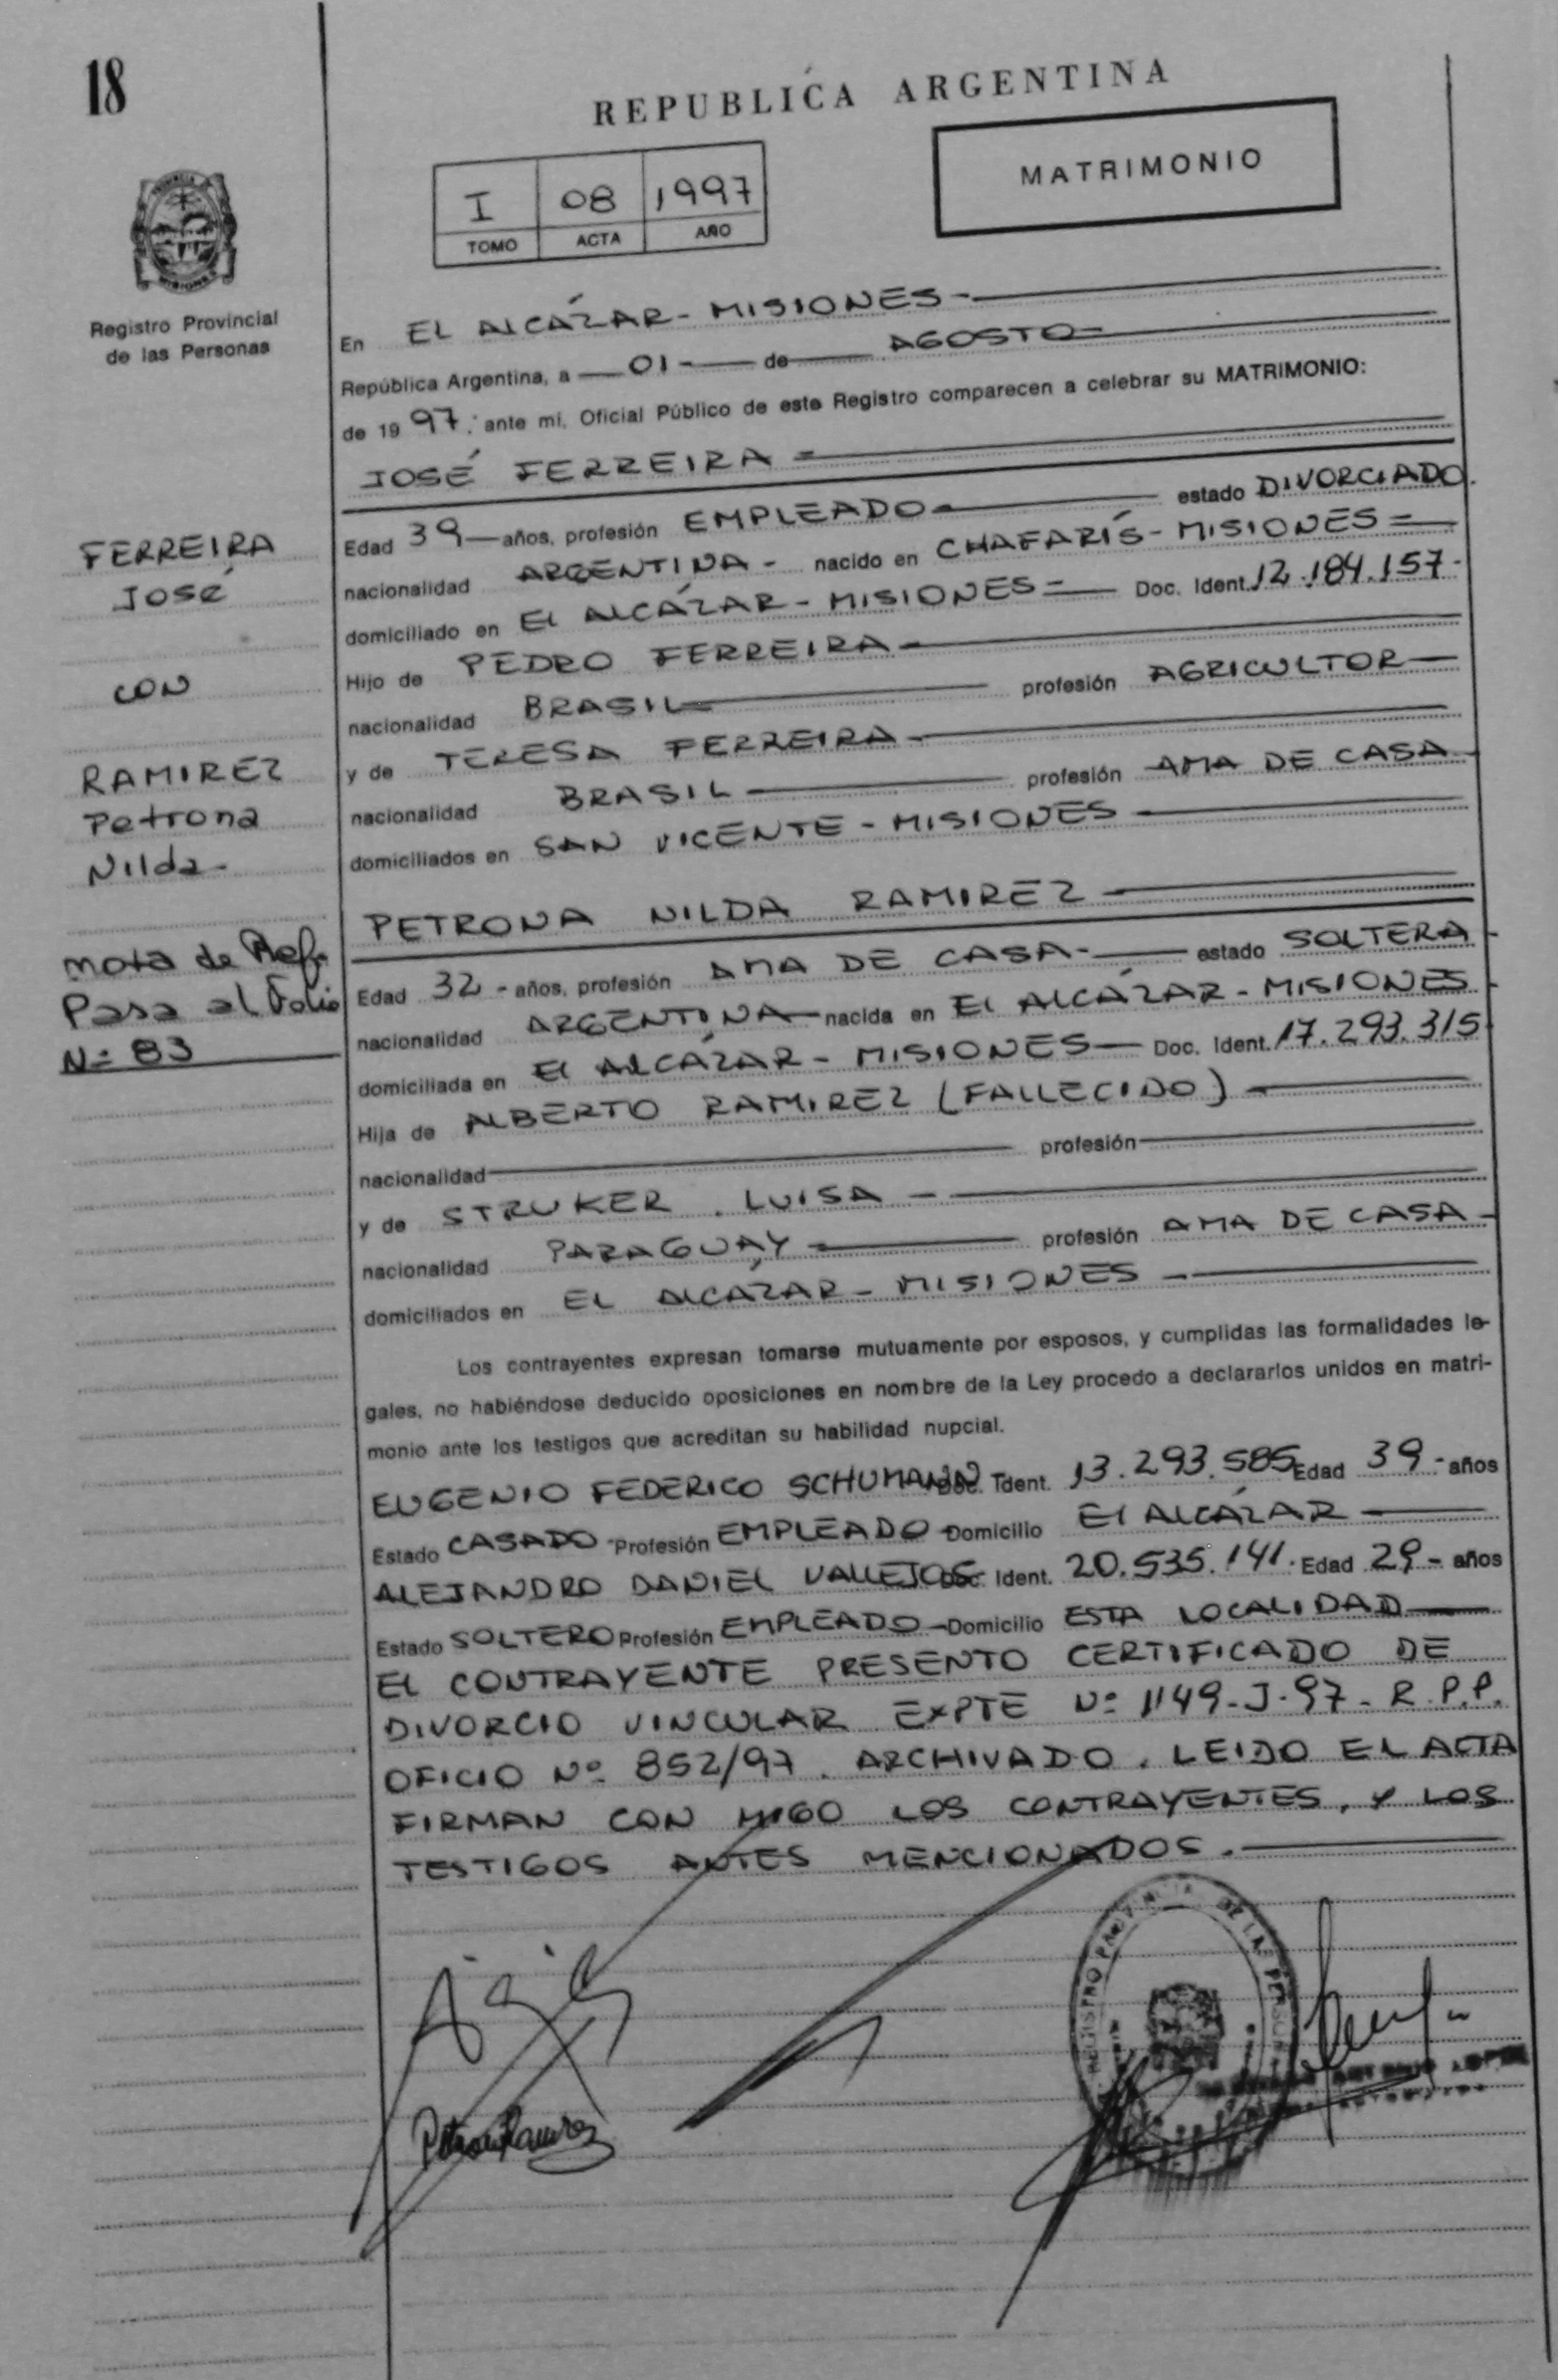 18
REPUBLICA ARGENTINA
MATRIMONIO
I 08 1997
TOMO ACTA AÑO
MISIONES
Registro Provincial
de las Personas
En EL ALCÁZAR - MISIONES -
República Argentina, a 01 - de AGOSTO
de 19 97. ante mi, Oficial Público de este Registro comparecen a celebrar su MATRIMONIO:
JOSÉ FERREIRA
Edad 39 años, profesión EMPLEADO estado DIVORCIADO.
nacionalidad ARGENTINA - nacido en CHAFARÍS - MISIONES
domiciliado en El ALCÁZAR - MISIONES Doc. Ident. 12.184.157-
Hijo de PEDRO FERREIRA
nacionalidad BRASIL profesión AGRICULTOR
y de TERESA FERREIRA
nacionalidad BRASIL profesión AMA DE CASA
domiciliados en SAN VICENTE - MISIONES
PETRONA NILDA RAMIREZ
Edad 32 - años, profesión AMA DE CASA - estado SOLTERA
nacionalidad ARGENTINA nacida en El ALCÁZAR - MISIONES
domiciliada en El ALCÁZAR - MISIONES Doc. Ident. 17.293.315
Hija de ALBERTO RAMIREZ (FALLECIDO)
nacionalidad profesión
y de STRUKER. LUISA -
nacionalidad PARAGUAY profesión AMA DE CASA -
domiciliados en EL ALCÁZAR - MISIONES
Los contrayentes expresan tomarse mutuamente por esposos, y cumplidas las formalidades le-
gales, no habiéndose deducido oposiciones en nombre de la Ley procedo a declararlos unidos en matri-
monio ante los testigos que acreditan su habilidad nupcial.
EUGENIO FEDERICO SCHUMANN Doc. Ident. 13.293.585 Edad 39 - años
Estado CASADO Profesión EMPLEADO Domicilio El ALCÁZAR
ALEJANDRO DANIEL VALLEJOS Doc. Ident. 20.535.141. Edad 29 - años
Estado SOLTERO Profesión EMPLEADO Domicilio ESTA LOCALIDAD
El CONTRAYENTE PRESENTO CERTIFICADO DE
DIVORCIO VINCULAR EXPTE Nº 1149-J-97- R.P.P.
OFICIO Nº 852/97. ARCHIVADO. LEIDO EL ACTA
FIRMAN CON MIGO LOS CONTRAYENTES, Y LOS
TESTIGOS ANTES MENCIONADOS.
FERREIRA
José
CON
RAMIREZ
Petrona
Nilda-
nota de Ref.
Pasa al Folio
Nº 83
REGISTRO PROVINCIAL DE LAS PERSONAS